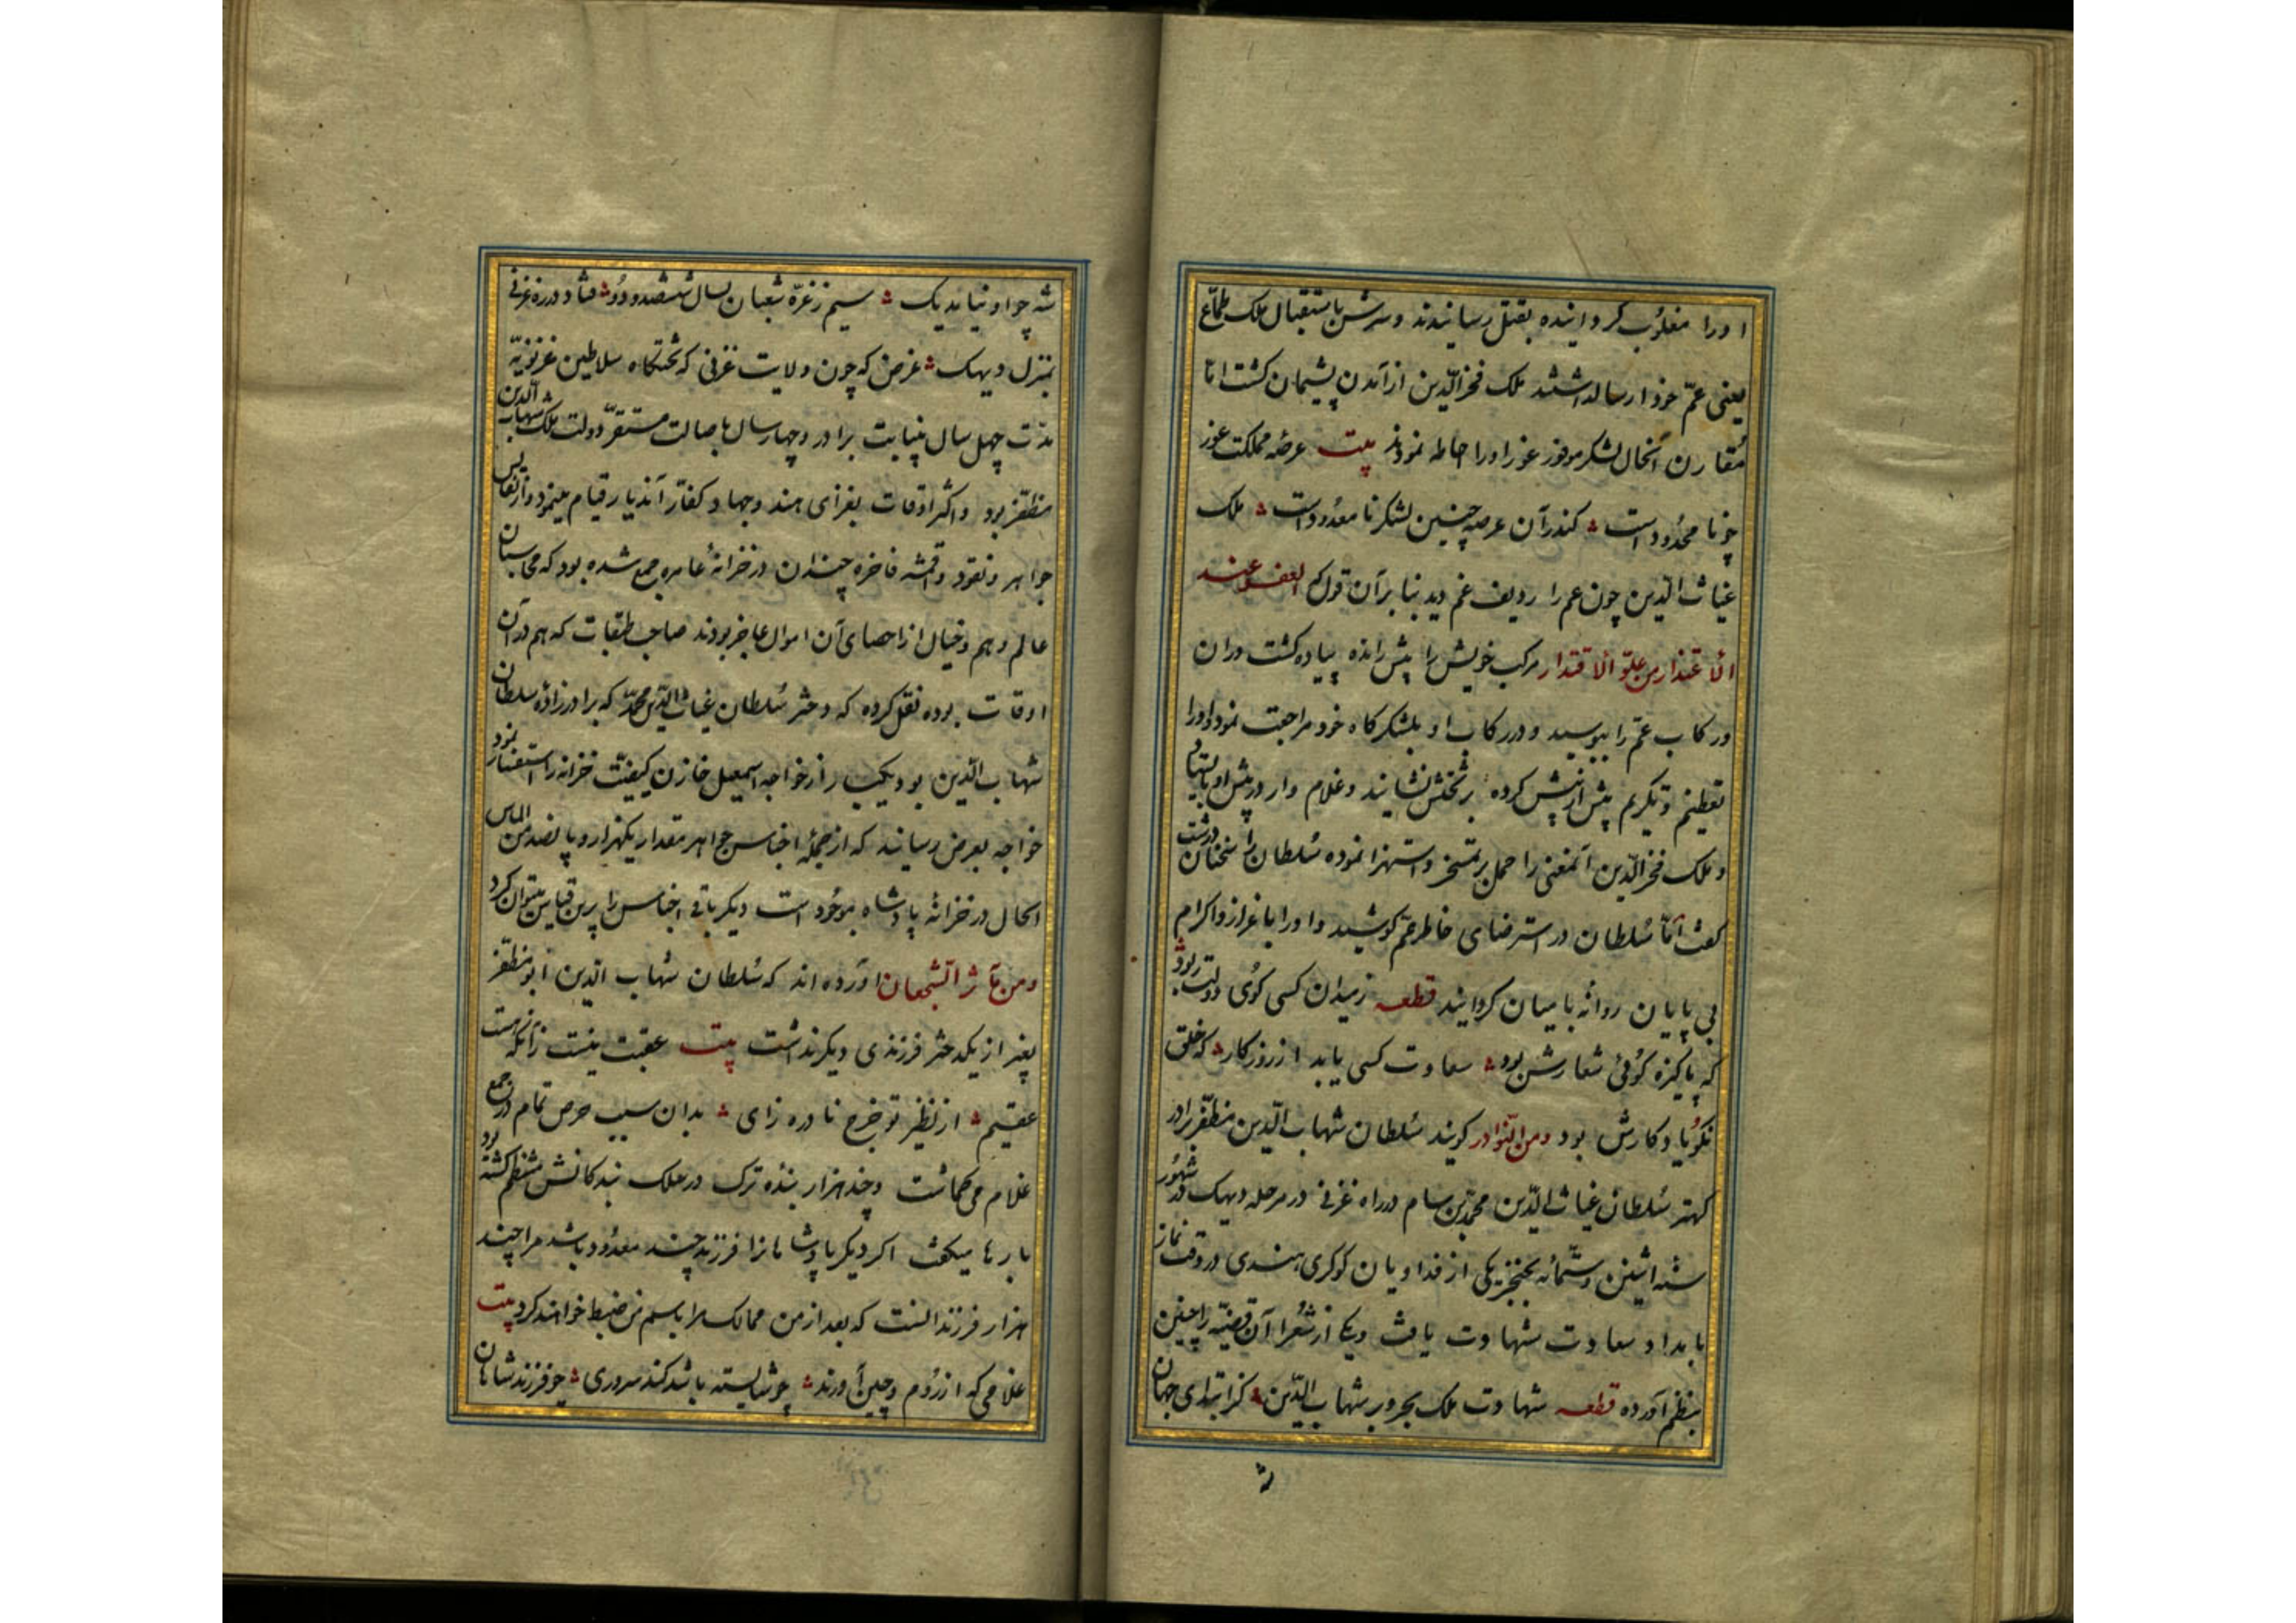 اورا مغلوب کردانیده بقتل رسانیدند و سرش باستقبال ملک طماع
یعنی عم خود ارسال داشتند ملک فخرالدین از آمدن پشیمان کشت اما
مقارن آنحال لشکر موفور غور اورا احاطه نمودند بیت عرصه مملکت غور
چه نا محدود است کندر آن عرصه چنین لشکر نا معدود است ملک
غیاث الدین چون عم را ردیف غم دید بنا برآن قول که العفو عند
الاقتدار من علو الاقتدار مرکب خویش را پیش رانده پیاده کشت دران
رکاب عم را ببوسید و در رکاب او بلشکرکاه خود مراجعت نمود و اورا
تعظیم و تکریم پیش از پیش کرده بر تختش نشانید و غلام وار در پیش او بایستاد
و ملک فخرالدین آنمعنی را حمل بر تمسخر و استهزا نموده سلطان را سخنان درشت
کفت اما سلطان در استرضای خاطر عم کوشید و اورا باعزاز و اکرام
بی پایان روانه بامیان کردانید قطعه ز میدان کسی کوی دولت ربود
که پاکیزه کوئی شعارش بود سعادت کسی یابد از روزکار که خلق
نکو یاد کارش بود و من النوادر کویند سلطان شهاب الدین مظفر برادر
کهتر سلطان غیاث الدین محمد بن سام در راه غزنی در مرحله دمیک در شهور
سنه اثنین و ستمائه بخنجر یکی از فداویان کوکری هندی در وقت نماز
بامداد سعادت شهادت یافت و یکی از شعرا آن قضیه را چنین
بنظم آورده قطعه شهادت ملک بحر و بر شهاب الدین کز ابتدای جهان
شه چو او نیامد یک سیم ز غره شعبان بسال ششصد و دو فتاد در ره غزنی
بمنزل دمیک غرض که چون ولایت غزنی که تختکاه سلاطین غزنویه
مدت چهل سال بنیابت برادر و چهار سال باصالت مستقر دولت ملک شهاب الدین
مظفر بود و اکثر اوقات بغزای هند و جهاد کفار آندیار قیام مینمود و از نفایس
جواهر و نقود و اقمشه فاخره چندان در خزانه عامره جمع شده بود که محاسبان
عالم وهم و خیال از احصای آن اموال عاجز بودند صاحب طبقات که هم در آن
اوقات بوده نقل کرده که دختر سلطان غیاث الدین محمد که برادرزاده سلطان
شهاب الدین بود یکبار از خواجه اسمعیل خازن کیفیت خزانه را استفسار نمود
خواجه بعرض رسانید که از جمله اجناس جواهر مقدار یکهزار و پانصد من الماس
الحال در خزانه پادشاه موجود است دیکر باقی اجناس را برین قیاس میتوان کرد
و من مآثر الشجعان آورده اند که سلطان شهاب الدین ابو مظفر
بغیر از یکدختر فرزندی دیکر نداشت بیت عقبت نیست زانکه هست
عقیم از نظیر تو چرخ نادره زای بدان سبب حرص تمام در جمع
غلام می کماشت و چند هزار بنده ترک در سلک بندکانش منتظم کشته بود
بارها میکفت اکر دیکر پادشاهانرا فرزند چند معدود باشد مرا چند
هزار فرزند است که بعد از من ممالک مرا باسم من ضبط خواهند کرد بیت
غلامی که از روم و چین آورند چو شایسته باشد کند سروری چو فرزند شاهان